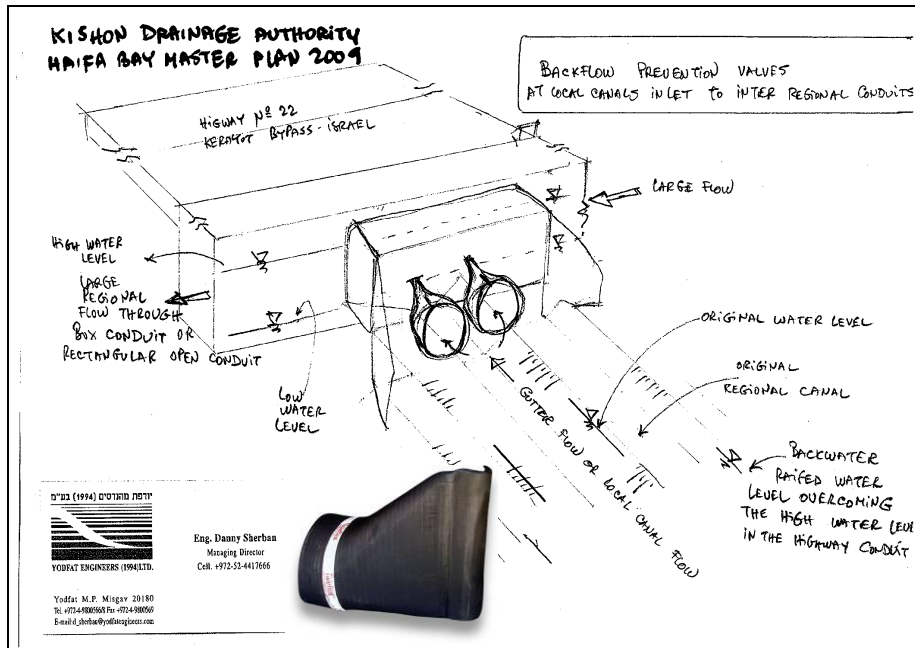 KISHON DRAINAGE AUTHORITY
HAIFA BAY MASTER PLAN 2009
BACKFLOW PREVENTION VALVES
AT LOCAL CANALS INLET TO INTER REGIONAL CONDUITS
HIGWAY Nº 22
KERAYOT BYPASS - ISRAEL
LARGE FLOW
HIGH WATER
LEVEL
LARGE
REGIONAL
FLOW THROUGH
BOX CONDUIT OR
RECTANGULAR OPEN CONDUIT
LOW
WATER
LEVEL
ORIGINAL WATER LEVEL
ORIGINAL
REGIONAL CANAL
GUTTER FLOW OR LOCAL CANAL FLOW
BACKWATER
RAIFED WATER
LEVEL OVERCOMING
THE HIGH WATER LEVE
IN THE HIGHWAY CONDUIT
יודפת מהנדסים (1994) בע"מ
YODFAT ENGINEERS (1994)LTD.
Eng. Danny Sherban
Managing Director
Cell. +972-52-4417666
Yodfat M.P. Misgav 20180
Tel. +972-4-9800566/8 Fax +972-4-9800569
E-mail:d_sherban@yodfatengineers.com